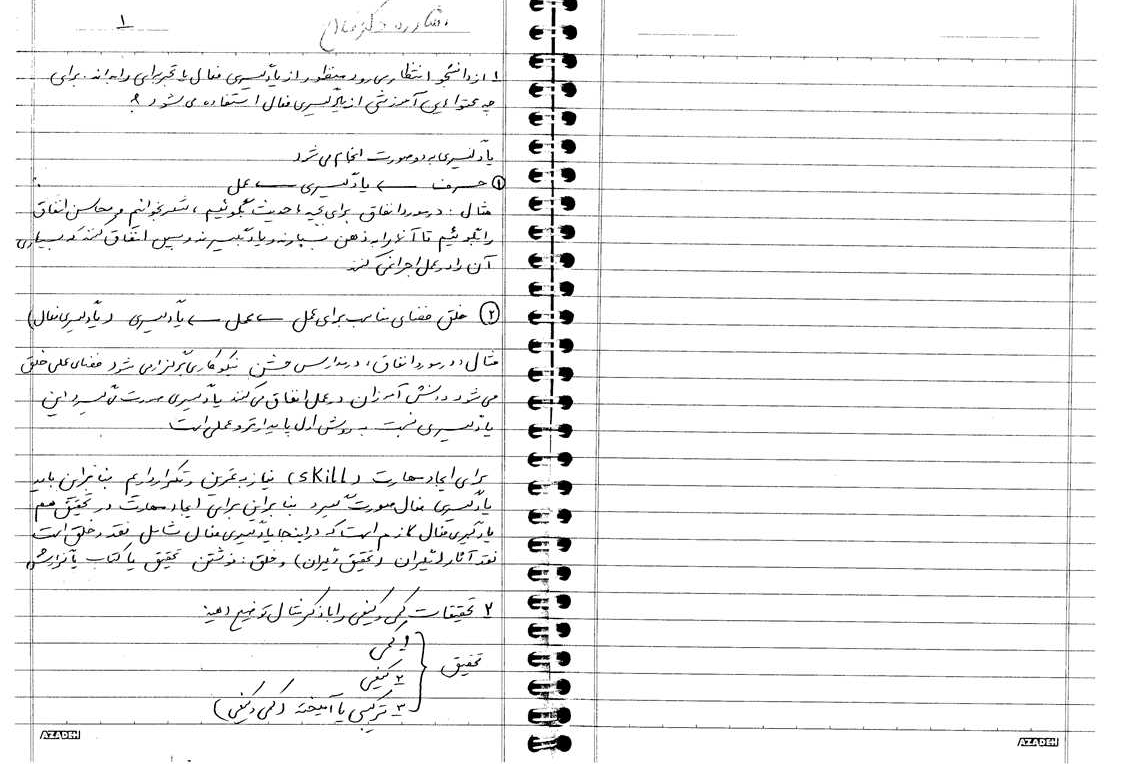 ۱
۱ از دانشجو انتظار می رود منظور از یادگیری فعال یا تجربی را بداند. برای
چه محتواهای آموزشی از یادگیری فعال استفاده می شود ؟
یادگیری به دو صورت انجام می شود
① حرف ← یادگیری ← عمل
مثال : در مورد انفاق برای بچه ها حدیث بگوئیم ، شعر بخوانیم و محاسن انفاق
را بگوئیم تا آنها را به ذهن بسپارند و یاد بگیرند و سپس انفاق کنند که بسیاری
آن را در عمل اجرا نمی کنند
② خلق فضای مناسب برای عمل ← عمل ← یادگیری (یادگیری فعال)
مثال : در مورد انفاق ، در مدارس جشن نیکوکاری برگزار می شود فضای عملی خلق
می شود دانش آموزان در عمل انفاق می کنند یادگیری صورت می گیرد این
یادگیری نسبت به روش اول پایدارتر و عملی است
برای ایجاد مهارت (skill) نیاز به تمرین و تکرار داریم بنابراین باید
یادگیری فعال صورت گیرد بنابراین برای ایجاد مهارت در تحقیق هم
یادگیری فعال لازم است که در اینجا یادگیری فعال شامل نقد و خلق است
نقد آثار دیگران (تحقیق دیگران) و خلق : نوشتن تحقیق یا کتاب یا گزارش
۲ تحقیقات کمی و کیفی را با ذکر مثال توضیح دهید
تحقیق
۱ کمی
۲ کیفی
۳ ترکیبی یا آمیخته (کمی و کیفی)
AZADEH
AZADEH